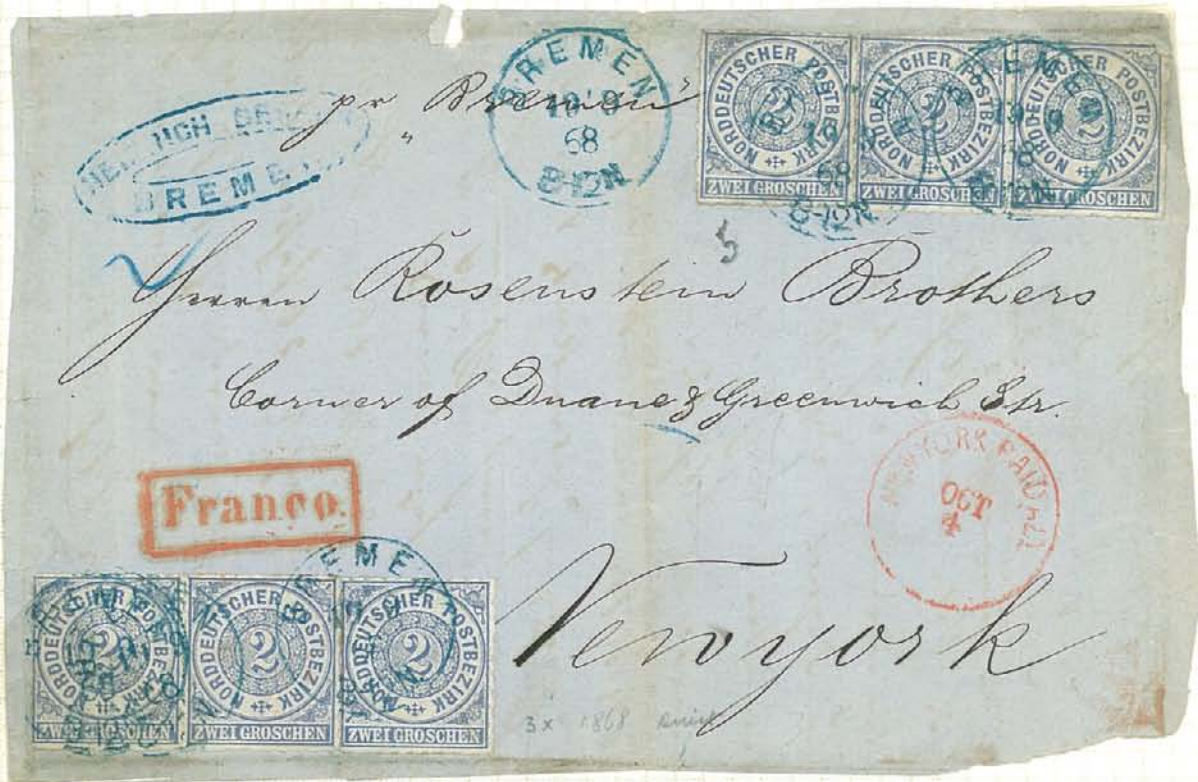 pr Bremen
BREMEN
19 9
68
8-12N
BREMEN
NORDDEUTSCHER POSTBEZIRK
2
ZWEI GROSCHEN
NORDDEUTSCHER POSTBEZIRK
2
ZWEI GROSCHEN
NORDDEUTSCHER POSTBEZIRK
2
ZWEI GROSCHEN
BREMEN
19 9
68
8-12N
Herren Rosenstein Brothers
Corner of Duane & Greenwich Str.
NEW YORK PAID ALL
OCT
4
Franco.
Newyork
BREMEN
NORDDEUTSCHER POSTBEZIRK
2
ZWEI GROSCHEN
NORDDEUTSCHER POSTBEZIRK
2
ZWEI GROSCHEN
NORDDEUTSCHER POSTBEZIRK
2
ZWEI GROSCHEN
3x 1868